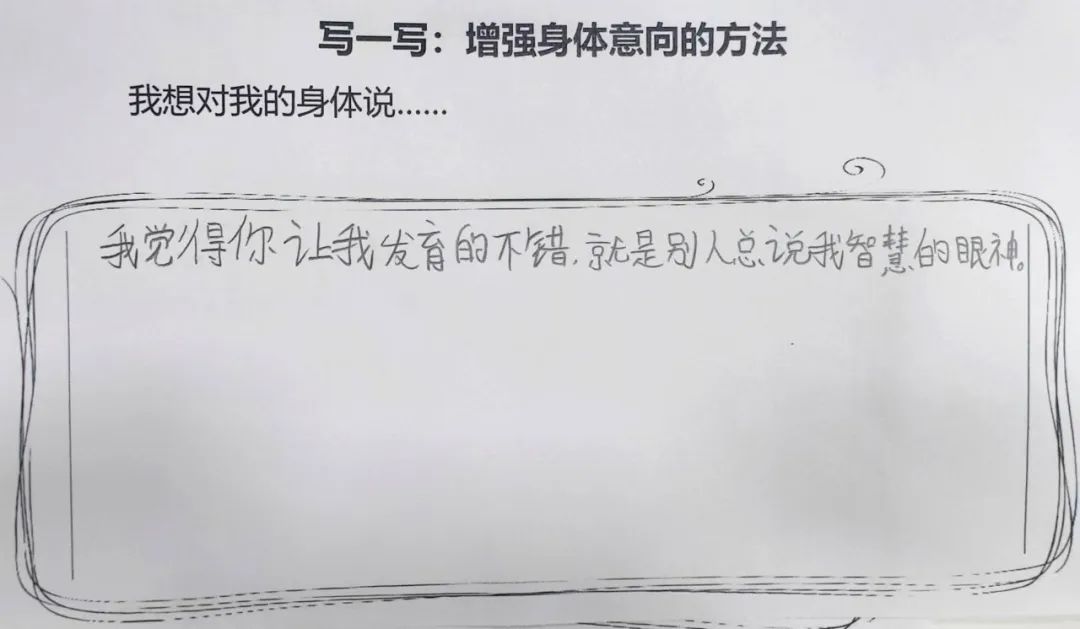 写一写：增强身体意向的方法
我想对我的身体说……
我觉得你让我发育的不错，就是别人总说我智慧的眼神。